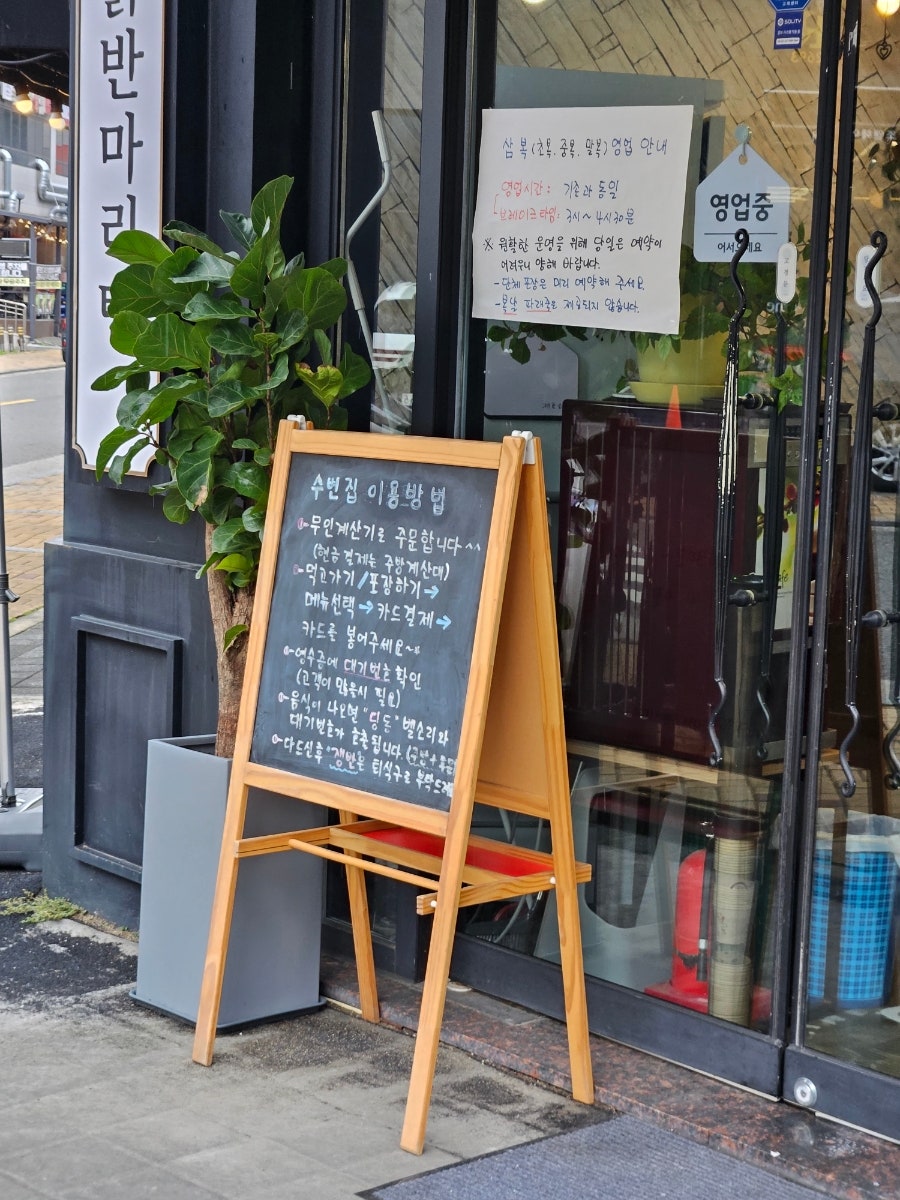 반마리
삼복(초복, 중복, 말복) 영업 안내
영업시간: 기존과 동일
브레이크타임: 3시~4시30분
※ 원활한 운영을 위해 당일은 예약이
어려우니 양해 바랍니다.
-단체 포장은 미리 예약해 주세요
-복날 파래죽은 제공되지 않습니다.
영업중
어서오세요
SOLiTY
수변집 이용방법
무인계산기로 주문합니다~^^
(현금결제는 주방계산대)
먹고가기/포장하기→
메뉴선택→카드결제→
카드를 뽑아주세요~
영수증에 대기번호 확인
(고객이 많을시 필요)
음식이 나오면 "딩동" 벨소리와
대기번호가 호출됩니다.
다드신후 "쟁반"을 퇴식구로